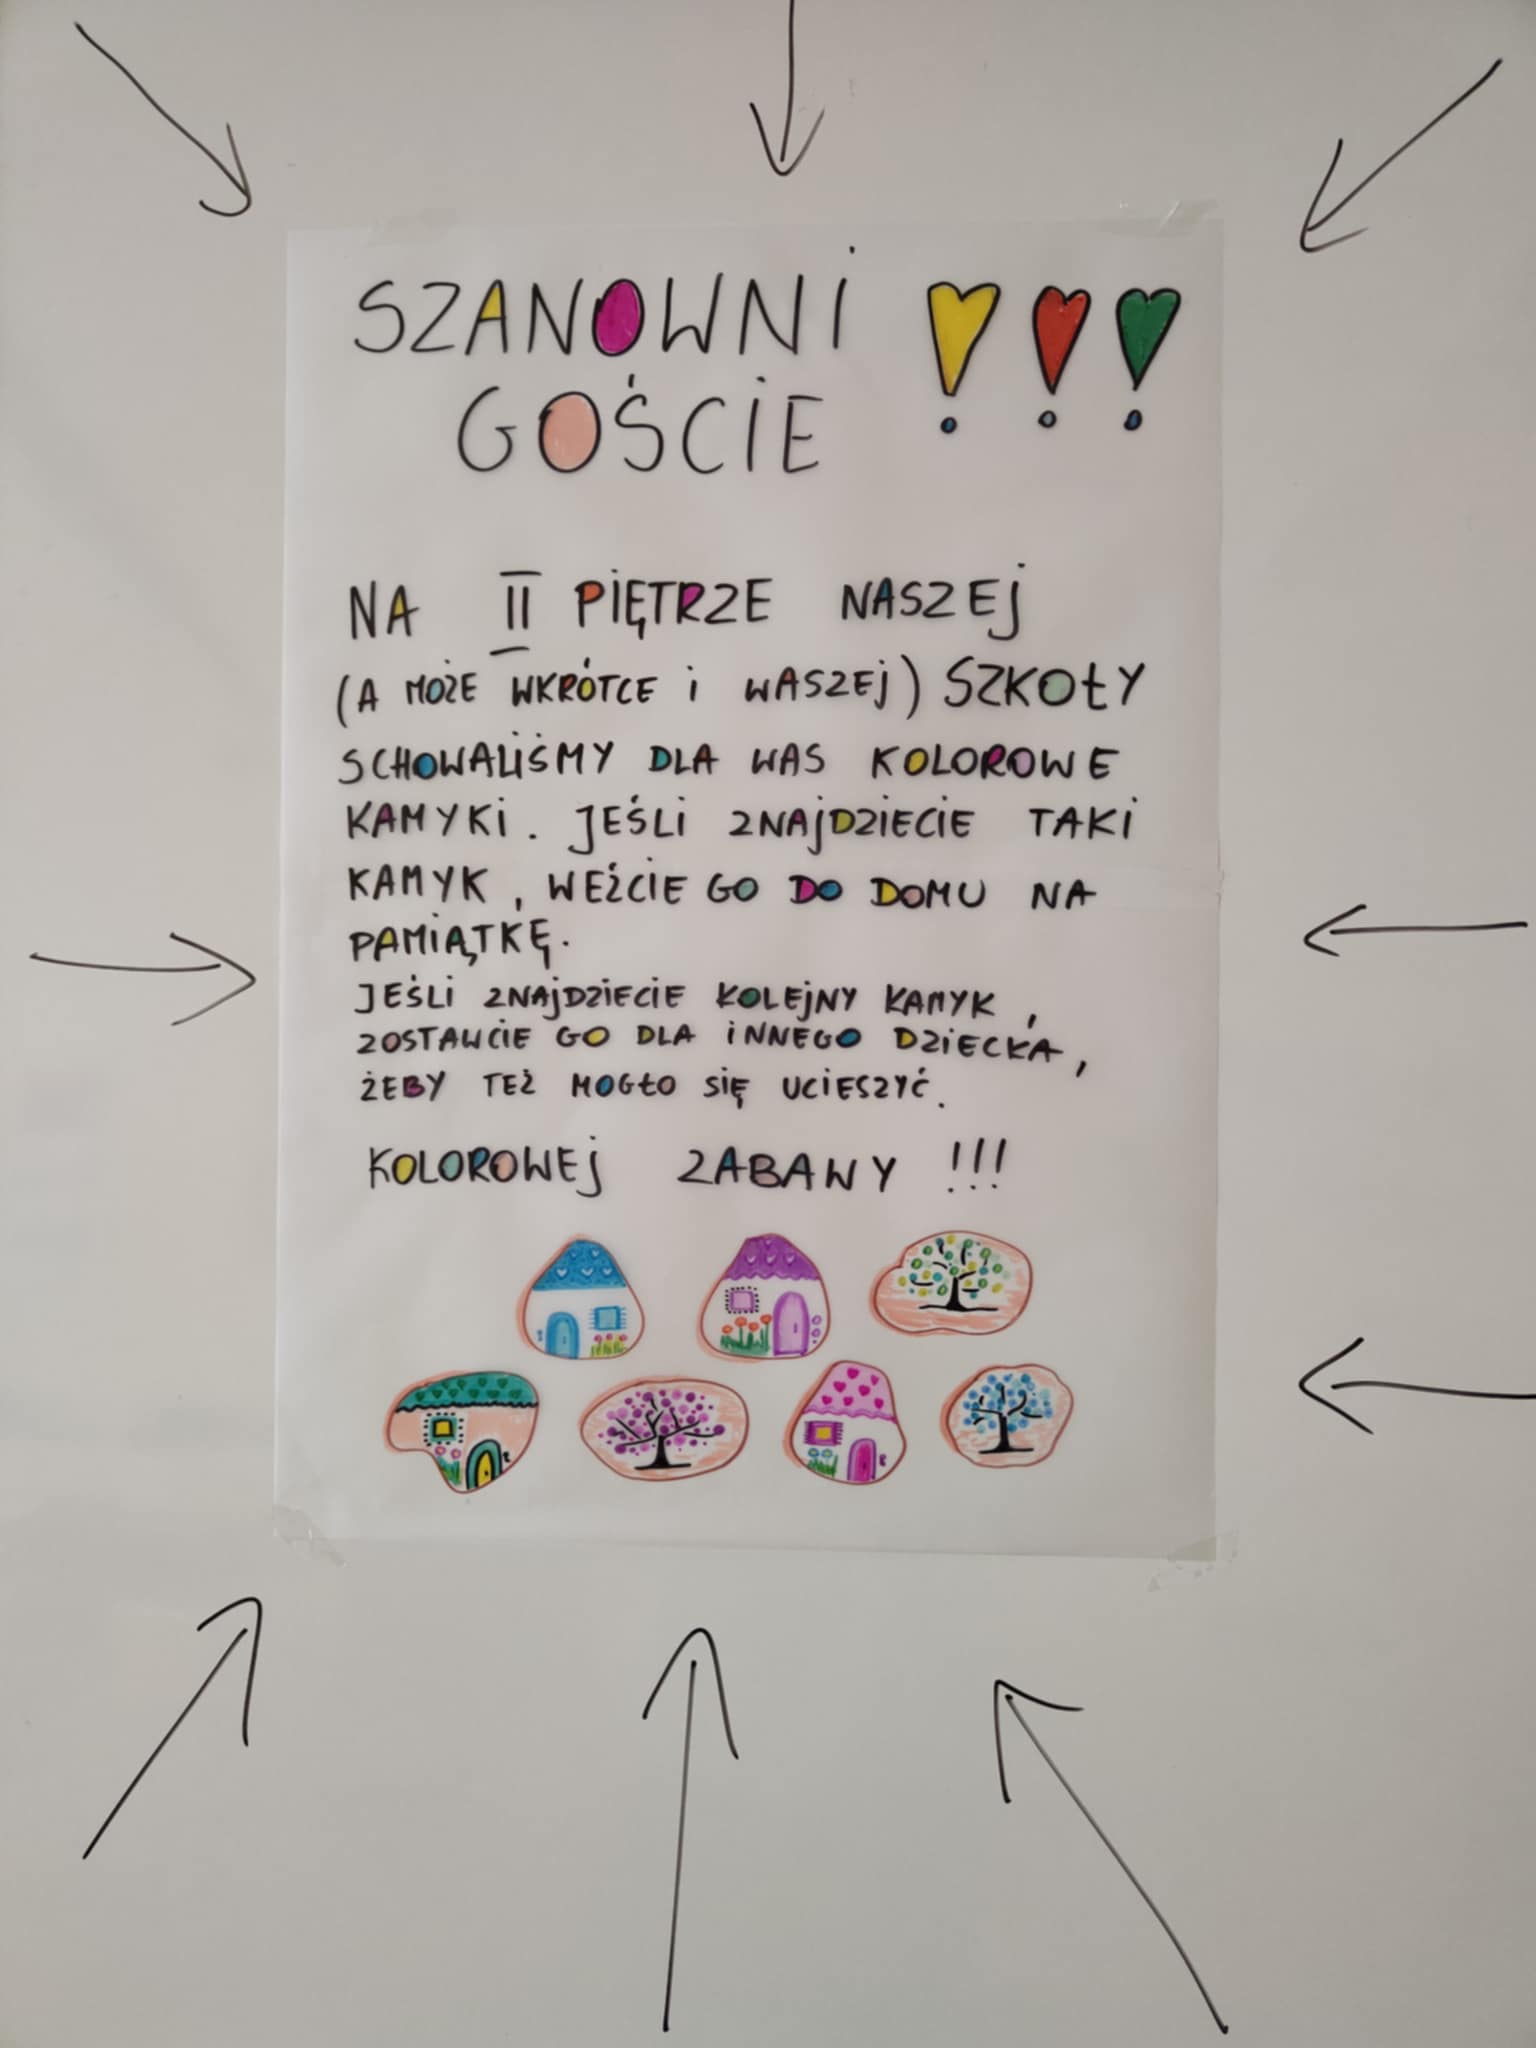 SZANOWNI !!!
GOŚCIE
NA II PIĘTRZE NASZEJ
(A MOŻE WKRÓTCE i WASZEJ) SZKOŁY
SCHOWALIŚMY DLA WAS KOLOROWE
KAMYKI. JEŚLI ZNAJDZIECIE TAKI
KAMYK, WEŹCIE GO DO DOMU NA
PAMIĄTKĘ.
JEŚLI ZNAJDZIECIE KOLEJNY KAMYK,
ZOSTAWCIE GO DLA INNEGO DZIECKA,
ŻEBY TEŻ MOGŁO SIĘ UCIESZYĆ.
KOLOROWEJ ZABAWY !!!